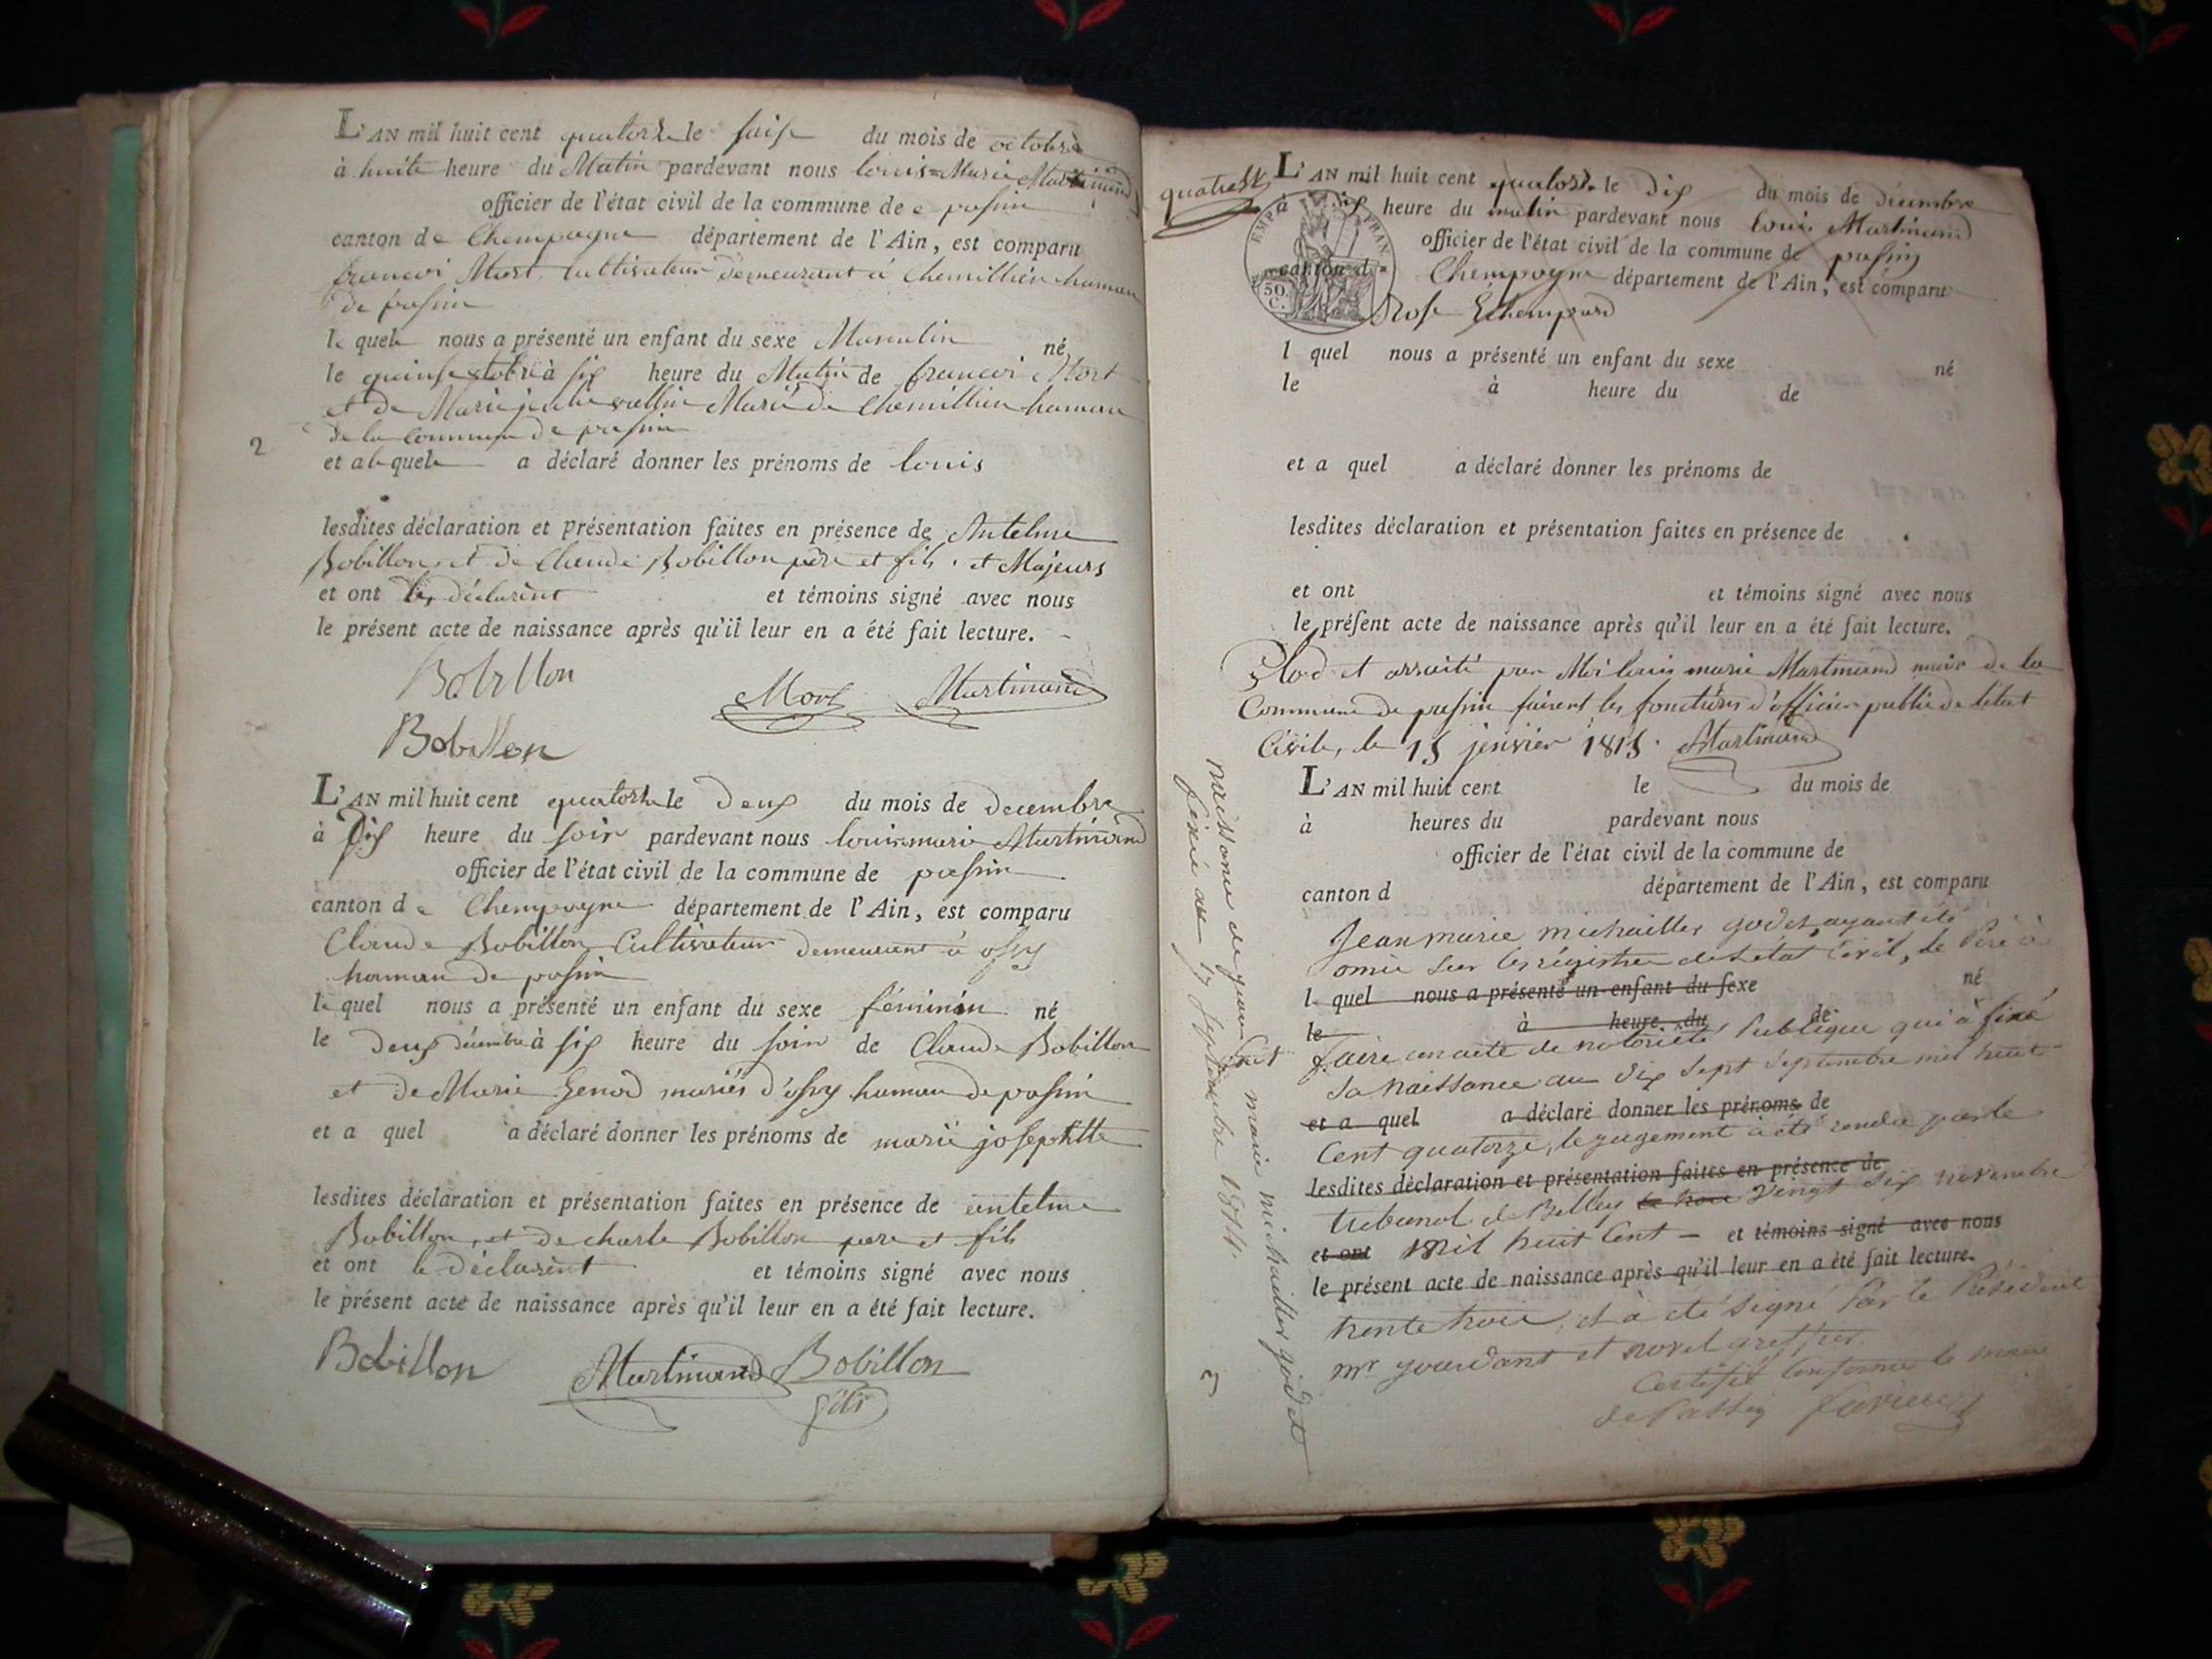 L'AN mil huit cent quatorze le saise du mois de octobre
à huite heure du Matin pardevant nous louis=Marie Martinand
officier de l'état civil de la commune de passin
canton de Chempagne département de l'Ain, est comparu
francoi Mort Cultivateur demeurant à Chemillieu hamau
de passin
le quel nous a présenté un enfant du sexe Masculin né
le quinse à six heure du Matin de francoi Mort
et de Marie Marié de Chemillieu hamau
de la Commune de passin
2
et a le quele a déclaré donner les prénoms de louis
lesdites déclaration et présentation faites en présence de Antelme
Bobillon, et de Claude Bobillon père et fils . et Majeurs
et ont les déclarent et témoins signé avec nous
le présent acte de naissance après qu'il leur en a été fait lecture.
Bobillon
Mort Martinand
Bobillon
L'AN mil huit cent quatorze le deux du mois de decembre
à six heure du soir pardevant nous louis marie Martinand
officier de l'état civil de la commune de passin
canton de Chempagne département de l'Ain, est comparu
Claude Bobillon Cultivateur demeurant à ossy
hamau de passin
le quel nous a présenté un enfant du sexe féminin né
le deux décembre à six heure du soir de Claude Bobillon
et de Marie Genod mariés d'ossy hamau de passin
et a quel a déclaré donner les prénoms de marie josephtte
lesdites déclaration et présentation faites en présence de antelme
Bobillon, et de charle Bobillon pere et fils
et ont le déclarent et témoins signé avec nous
le présent acte de naissance après qu'il leur en a été fait lecture.
Bobillon Martinand Bobillon
fils
L'AN mil huit cent quatorze le dix du mois de décembre
à six heure du matin pardevant nous louis Martinand
officier de l'état civil de la commune de passin
canton d Chempagne département de l'Ain, est comparu
Rose
EMP. FRAN
50
C.
l quel nous a présenté un enfant du sexe né
le à heure du de
et a quel a déclaré donner les prénoms de
lesdites déclaration et présentation faites en présence de
et ont et témoins signé avec nous
le présent acte de naissance après qu'il leur en a été fait lecture.
Clod et arraité par Moi louis marie Martinand maire de la
Commune de passin faisent les fonctions d'officier public de létat
Civile, le 15 jenvier 1815. Martinand
L'AN mil huit cent le du mois de
à heures du pardevant nous
officier de l'état civil de la commune de
canton d département de l'Ain, est comparu
Jean marie michailler godet, ayant été
omis sur les régistre de létat Civil, le Père à
l quel nous a présenté un enfant du sexe né
le à heure du de
faire un acte de notorieté Publique qui à fixé
sa naissance au dix sept septembre mil huit
et a quel a déclaré donner les prénoms de
Cent quatorze, le jugement à été rendu par le
lesdites déclaration et présentation faites en présence de
tribunal de Belley vingt six novembre
et ont mil huit Cent - et témoins signé avec nous
le présent acte de naissance après qu'il leur en a été fait lecture.
trente trois, et à été signé Par le Président
mr jourdant et greffier
Certifié Conforme le maire
de Passin
naissance de jean marie michailler godet
fixée au 17 septembre 1814.
3